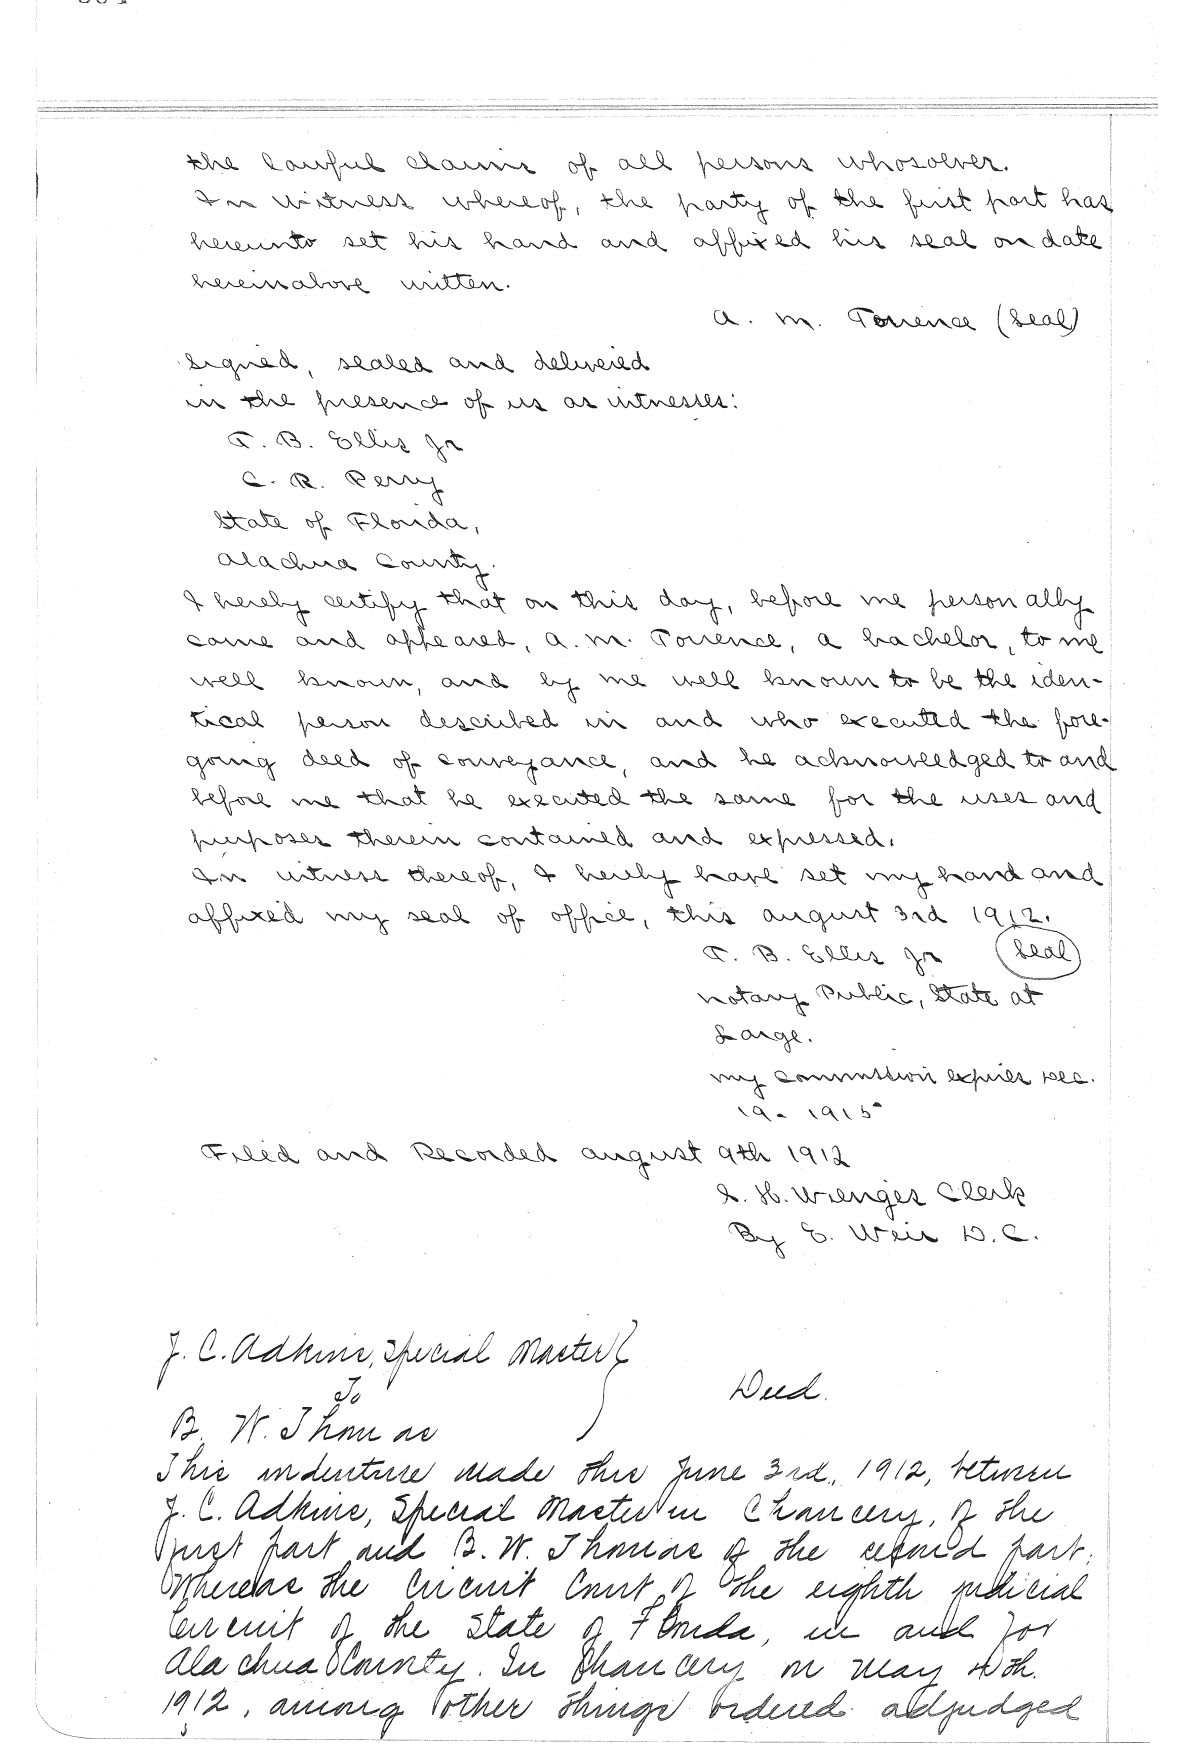 the lawful claims of all persons whosoever.
In witness whereof, the party of the first part has
hereunto set his hand and affixed his seal on date
hereinabove written.
A. M. Torrence (Seal)
Signed, sealed and delivered
in the presence of us as witnesses:
T. B. Ellis Jr
C. R. Perry
State of Florida,
Alachua County.
I hereby certify that on this day, before me personally
came and appeared, A. M. Torrence, a bachelor, to me
well known, and by me well known to be the iden-
tical person described in and who executed the fore-
going deed of conveyance, and he acknowledged to and
before me that he executed the same for the uses and
purposes therein contained and expressed.
In witness thereof, I hereby have set my hand and
affixed my seal of office, this August 3rd 1912.
T. B. Ellis Jr (Seal)
Notary Public, State at
Large.
My commission expires Dec.
19 - 1915
Filed and Recorded August 9th 1912
S. H. Wienges Clerk
By E. Weir D.C.
J. C. Adkins, Special Master
To
Deed.
B. W. Thomas
This indenture made this June 3rd., 1912, between
J. C. Adkins, Special Master in Chancery, of the
first part and B. W. Thomas of the second part;
Whereas the Circuit Court of the eighth judicial
Circuit of the State of Florida, in and for
Alachua County. In Chancery on May 4th.
1912, among other things ordered adjudged